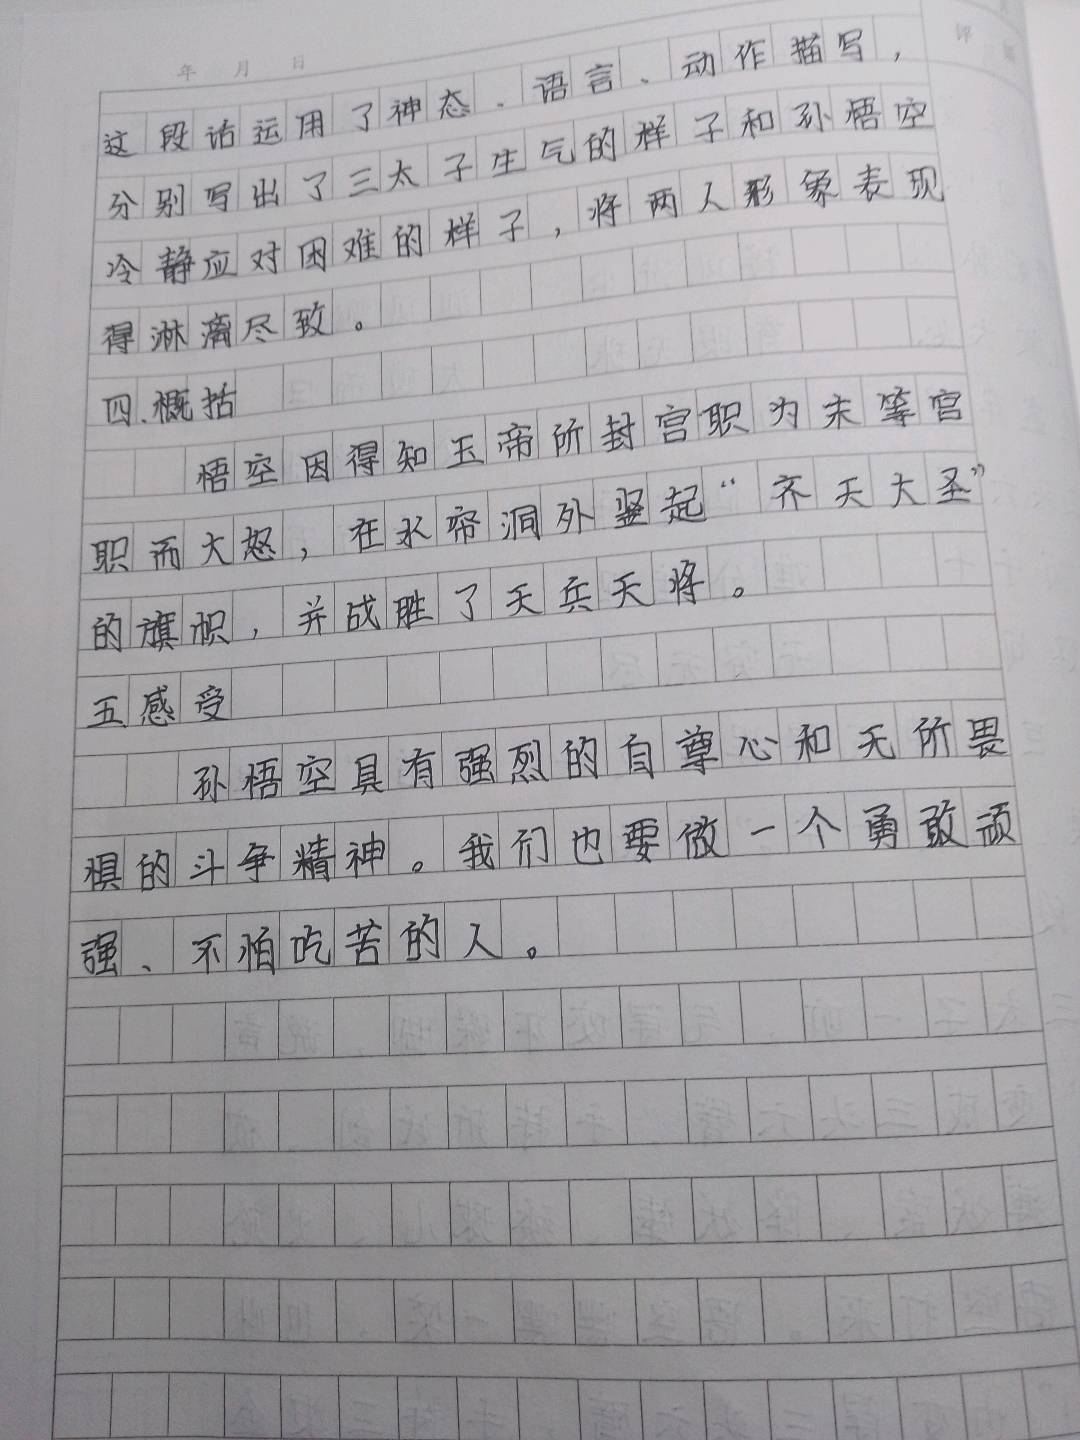 年 月 日
这段话运用了神态、语言、动作描写，
分别写出了三太子生气的样子和孙悟空
冷静应对困难的样子，将两人形象表现
得淋漓尽致。
四.概括
悟空因得知玉帝所封官职为末等官
职而大怒，在水帘洞外竖起“齐天大圣”
的旗帜，并战胜了天兵天将。
五感受
孙悟空具有强烈的自尊心和无所畏
惧的斗争精神。我们也要做一个勇敢顽
强、不怕吃苦的人。